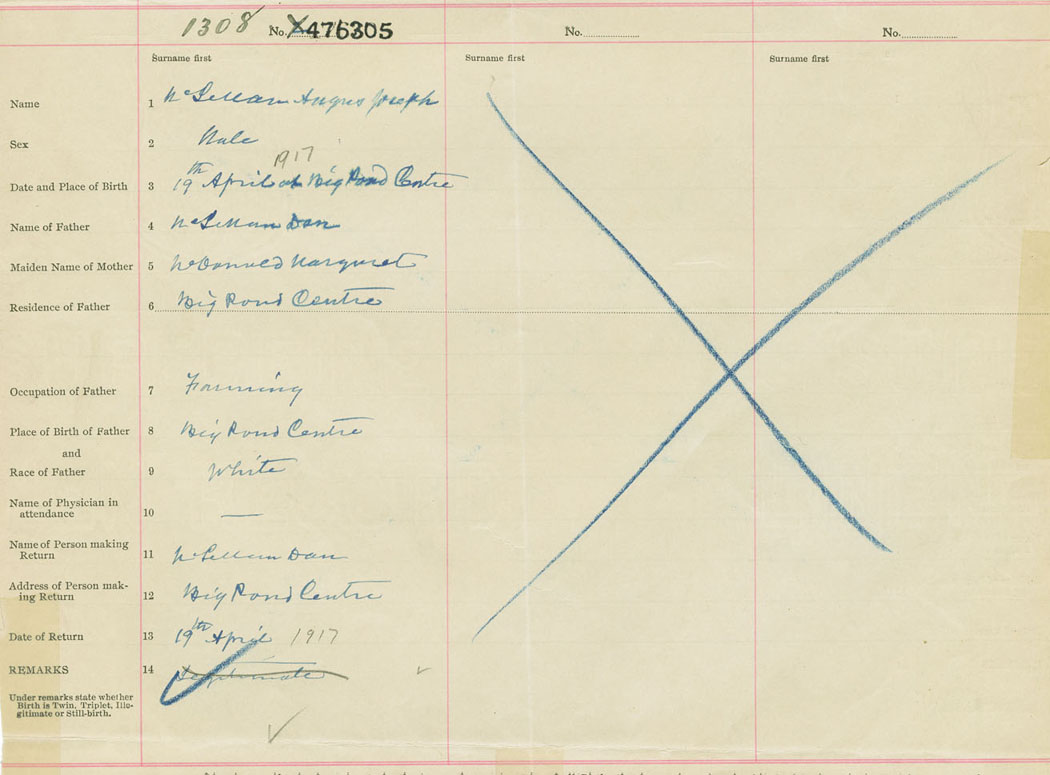 1308 No. X476305 No. No.
Surname first Surname first Surname first
Name 1 McLellan Angus Joseph
Sex 2 Male
1917
Date and Place of Birth 3 19th April at Big Pond Centre
Name of Father 4 McLellan Dan
Maiden Name of Mother 5 McDonald Margaret
Residence of Father 6 Big Pond Centre
Occupation of Father 7 Farming
Place of Birth of Father 8 Big Pond Centre
and
Race of Father 9 White
Name of Physician in
attendance 10 —
Name of Person making
Return 11 McLellan Dan
Address of Person mak-
ing Return 12 Big Pond Centre
Date of Return 13 19th April 1917
REMARKS 14 Legitimate
Under remarks state whether
Birth is Twin, Triplet, Ille-
gitimate or Still-birth.